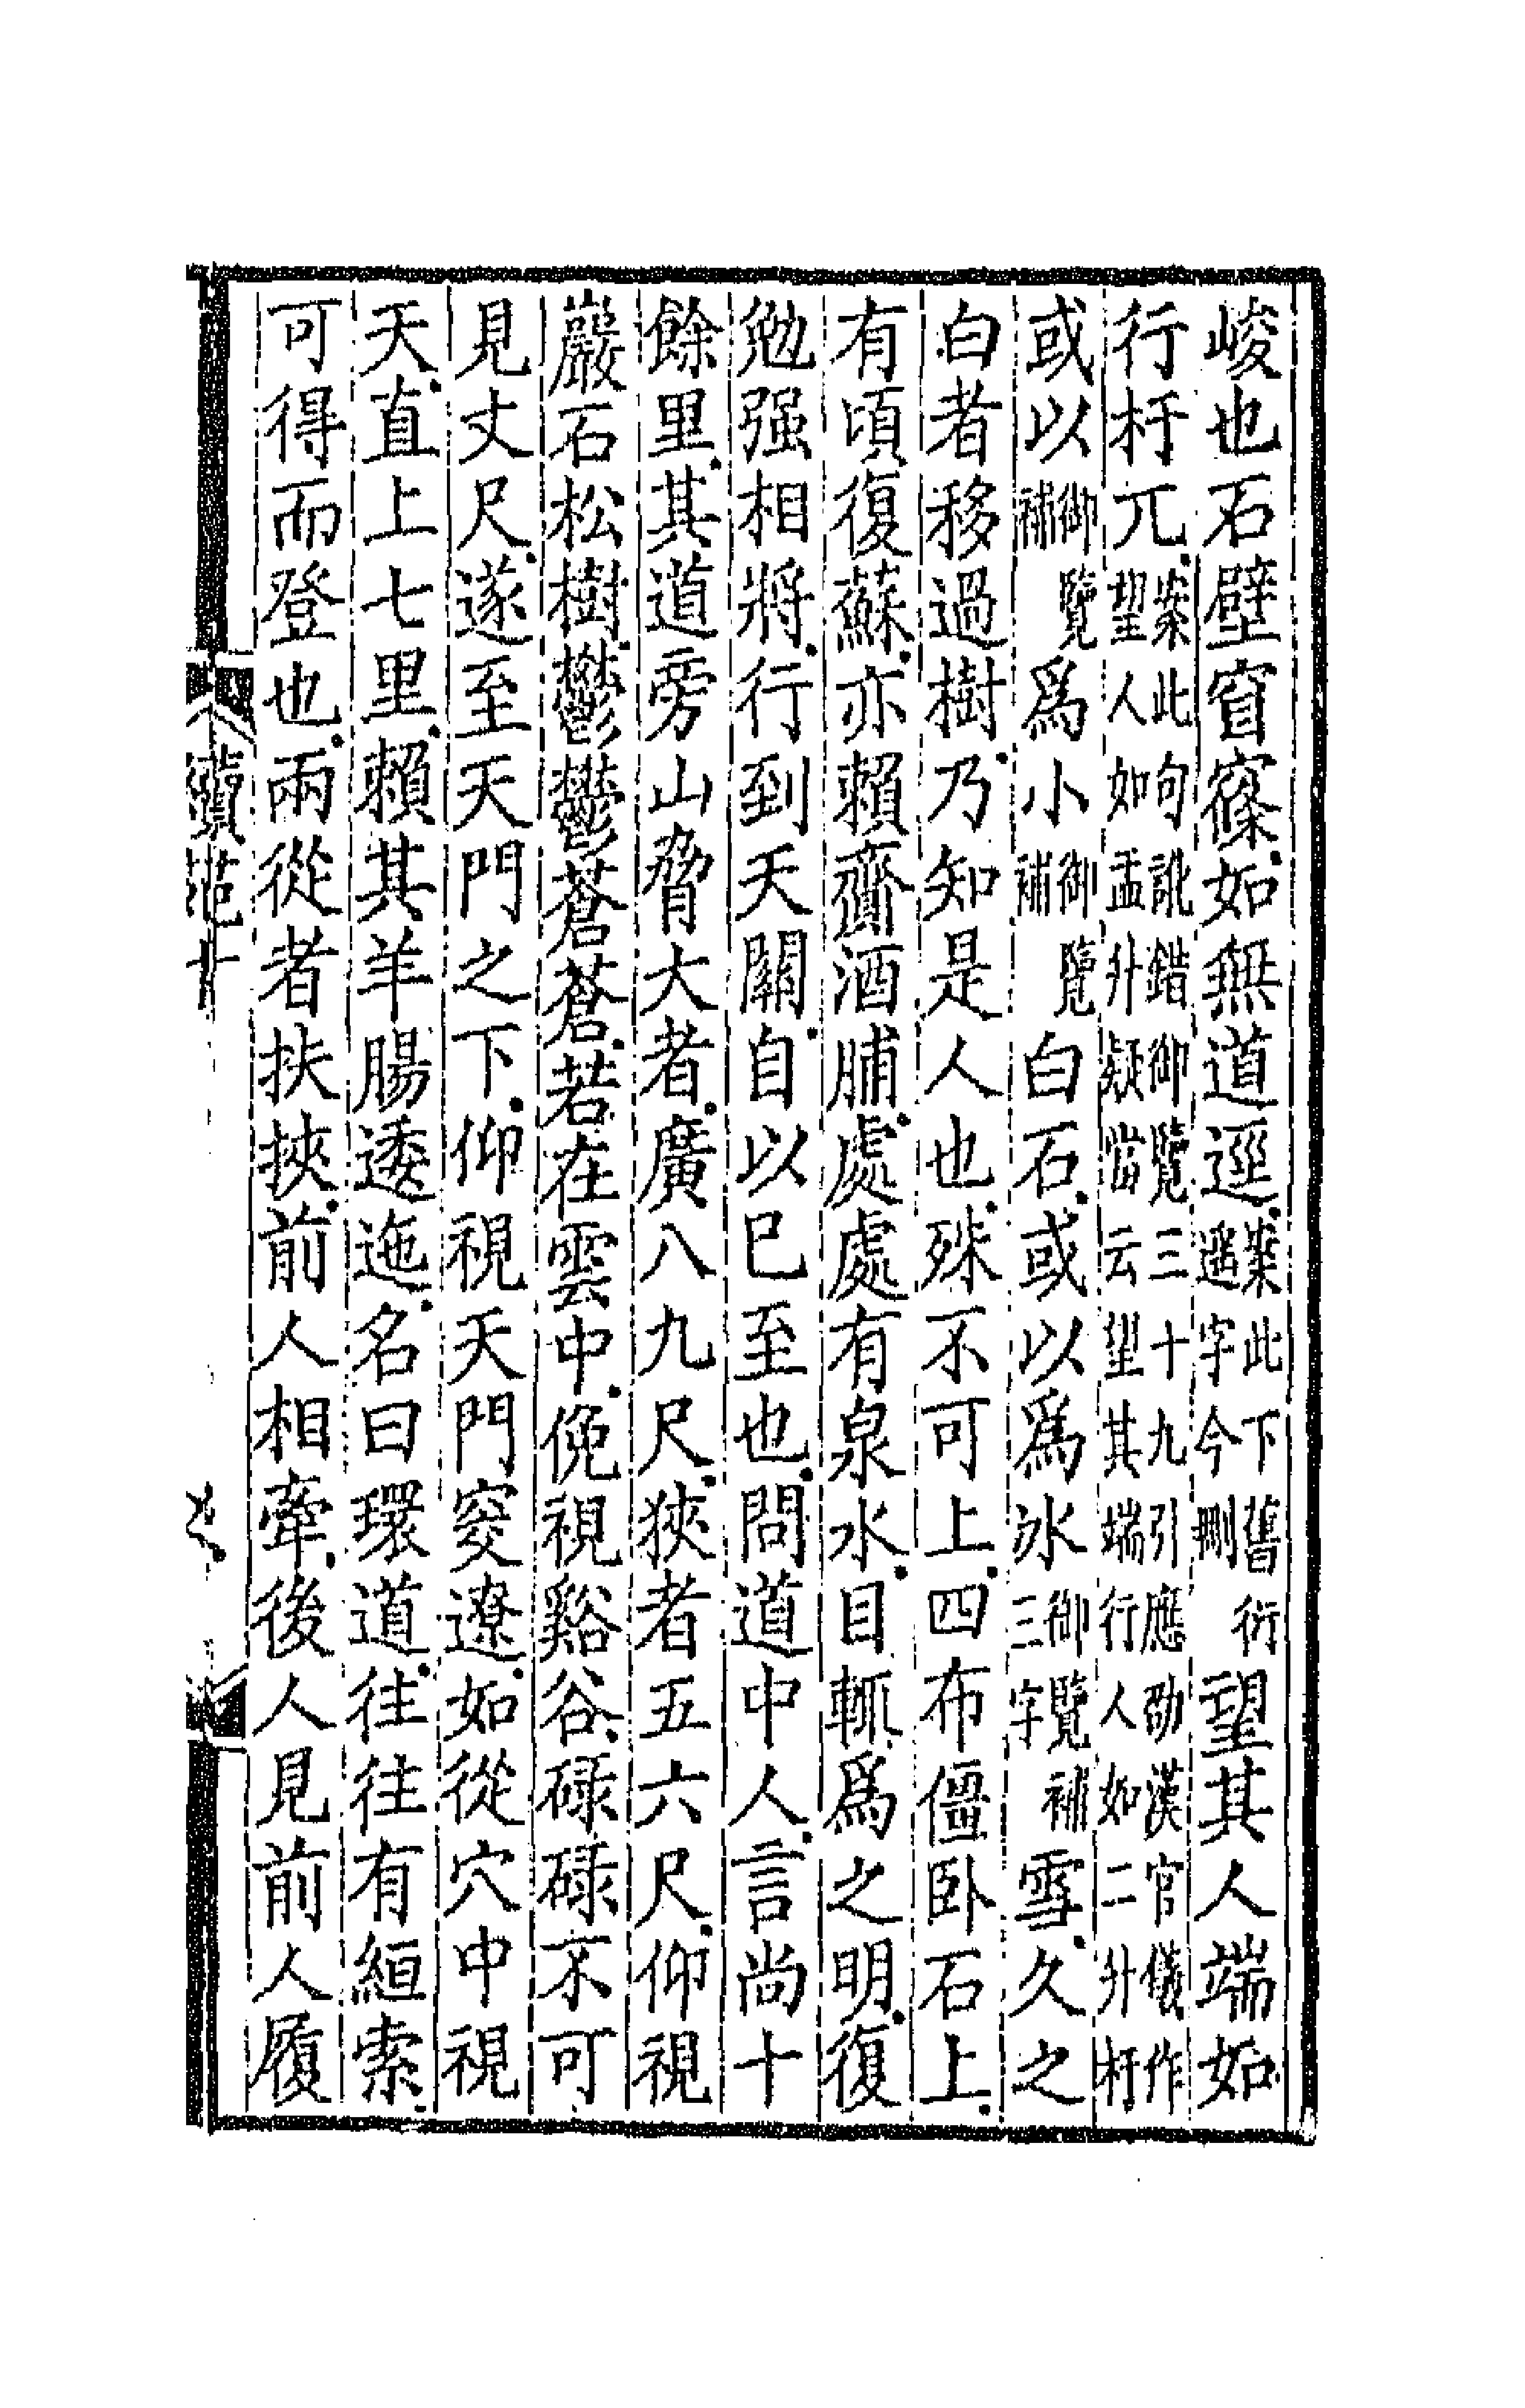 峻也石壁窅窱如無道逕案此下舊衍遥字今刪望其人端如
行杅兀案此句訛錯御覽三十九引應劭漢官儀作望人如盂升疑當云望其端行人如二升杅
或以御覽補爲小御覽補白石或以爲冰御覽三字補雪久之
白者移過樹乃知是人也殊不可上四布僵卧石上
有頃復蘇亦賴齎酒脯處處有泉水目輒爲之明復
勉强相將行到天關自以巳至也問道中人言尚十
餘里其道旁山脅大者廣八九尺狹者五六尺仰視
巖石松樹鬱鬱蒼蒼若在雲中俛視谿谷碌碌不可
見丈尺遂至天門之下仰視天門窔遼如從穴中視
天直上七里賴其羊腸逶迤名曰環道往往有絙索
可得而登也兩從者扶挾前人相牽後人見前人履
續范廿